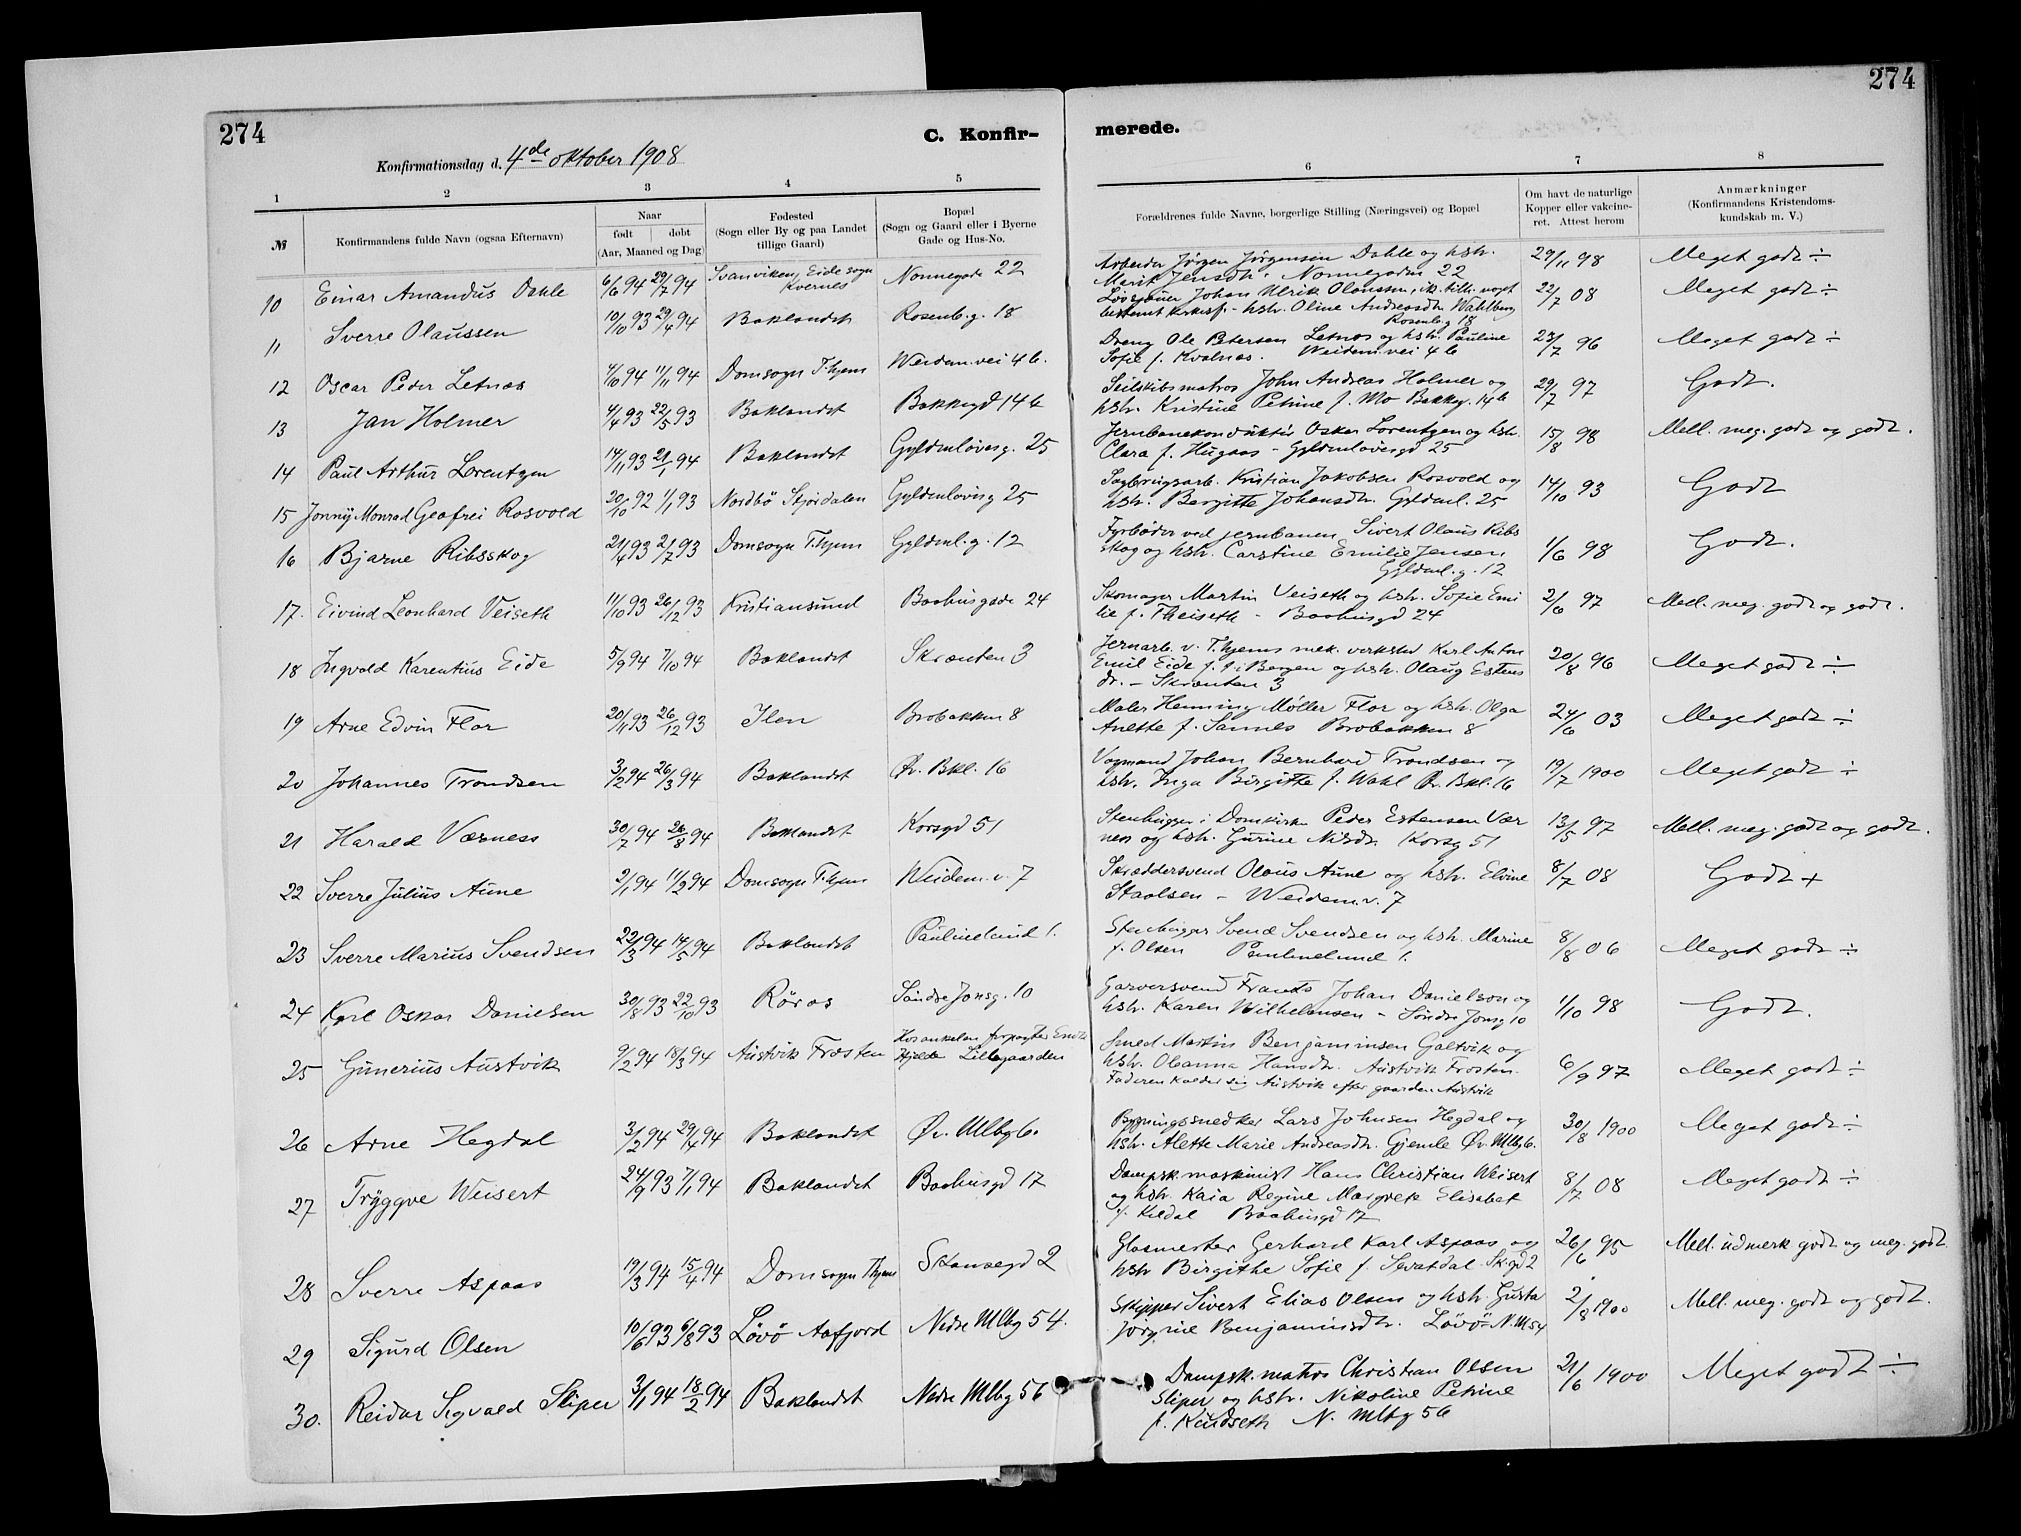 274
274
C. Konfir-
merede.
Konfirmationsdag d. 4de oktober 1908
1 2 3 4 5 6 7 8
№ Konfirmandens fulde Navn (ogsaa Efternavn)
Naar
født døbt
(Aar, Maaned og Dag)
Fødested
(Sogn eller By og paa Landet
tillige Gaard)
Bopæl
(Sogn og Gaard eller i Byerne
Gade og Hus-No.
Forældrenes fulde Navne, borgerlige Stilling (Næringsvei) og Bopæl
Om havt de naturlige
Kopper eller vakcine-
ret. Attest herom
Anmærkninger
(Konfirmandens Kristendoms-
kundskab m. V.)
10 Einar Amandus Dahle 6/6 94 29/7 94 Svanviken, Eide sogn Kvernes Nonnegade 22
Arbeider Jørgen Jørgensen Dahle og hstr.
Marit Jensdtr. Nonnegaden 22
29/11 98 Meget godt ÷
11 Sverre Olaussen 10/10 93 29/4 94 Baklandet Rosenb.g. 18
Johan Ulrik Olaussen, ik. tilh. noget
bestemt kirkesf. - hstr. Oline Andreasdtr. Wahlberg
Rosenb.g 18
22/7 08 Meget godt ÷
12 Oscar Peder Letnes 4/10 94 11/11 94 Domsogn T.hjem Weidem.vei 4b.
Dreng Ole Petersen Letnes og hstr. Pauline
Sofie f. Kvalnes. Weidem.vei 4b
23/7 96 Meget godt ÷
13 Jan Holmer 4/4 93 22/5 93 Baklandet Bakkegd 14b
Seilskibsmatros John Andreas Holmer og
hstr. Kristine Petrine f. Mo Bakkeg. 14b
29/7 97 Godt.
14 Paul Arthur Lorentzen 14/11 93 21/1 94 Baklandet Gyldenløvesg. 25
Jernbanekonduktør Oskar Lorentzen og hstr.
Clara f. Hugaas - Gyldenløvesgd 25
15/8 98 Mell. meg. godt og godt.
15 Jonny Monrad Geofrei Rosvold 20/10 92 1/1 93 Nordbö Stjørdalen Gyldenløvesg 25
Sagbrugsarb. Kristian Jakobsen Rosvold og
hstr. Bergitte Johansdtr. Gyldenl. 25
14/10 93 Godt
16 Bjarne Ribsskog 21/4 93 2/7 93 Domsogn T.hjem Gyldenl.g. 12
Fyrbøder ved jernbanen Sivert Olaus Ribs
skog og hstr. Carstine Emilie Jensen
Gyldenl.g. 12
1/6 98 Godt.
17. Eivind Leonhard Veiseth 11/10 93 26/12 93 Kristiansund Baahusgade 24
Skomager Martin Veiseth og hstr. Sofie Emi
lie f. Theiseth - Baahusgd 24
2/6 97 Mell. meg. godt og godt.
18 Ingvald Karentius Eide 5/9 94 7/10 94 Baklandet Skrænten 3
Jernarb. v. T.hjems mek. verksted Karl Anton
Emil Eide f. i Bergen og hstr. Olaug Estens
dr. - Skrænten 3
20/8 96 Meget godt ÷
19 Arne Edvin Flor 20/11 93 26/12 93 Ilen Brobakken 8
Maler Henning Møller Flor og hstr. Olga
Anette f. Sannes Brobakken 8
24/6 03 Meget godt ÷
20 Johannes Trondsen 3/2 94 26/3 94 Baklandet Øv. Bkl. 16
Vogmand Johan Bernhard Trondsen og
hstr. Inga Birgitte f. Wahl Øv. Bkl. 16
19/7 1900 Meget godt ÷
21 Harald Værness 30/7 94 26/8 94 Baklandet Korsgd 51
Stenhugger i Domkirken Peder Estensen Vær
nes og hstr. Gurine Nilsdr. Korsg 51
13/5 97 Mell. meg. godt og godt.
22 Sverre Julius Aune 2/1 94 11/2 94 Domsogn T.hjem Weidem.v. 7
Skræddersvend Olaus Aune og hstr. Elvine
Staalsen - Weidem.v. 7
8/7 08 Godt +
23 Sverre Marius Svendsen 22/3 94 14/5 94 Baklandet Paulinelund 1.
Stenhugger Svend Svendsen og hstr. Marine
f. Olsen Paulinelund 1.
8/8 06 Meget godt ÷
24 Karl Oskar Danielsen 30/8 93 22/10 93 Röros Søndre Jonsg. 10
Garversvend Frants Johan Danielson og
hstr. Karen Wilhelmsen - Söndre Jonsg 10
1/10 98 Godt.
25 Gunerius Austvik 9/2 94 18/3 94 Austvik Frosten Hos onkelen forpagter
Hjelde Lillegaarden
Smed Martin Benjaminsen Galtvik og
hstr. Oleanna Hansdtr. Austvik Frosten.
Faderen kalder sig Austvik efter gaarden Austvik
6/9 97 Meget godt ÷
26 Arne Hegdal 3/2 94 29/4 94 Baklandet Øv. Mlbg 6.
Bygningssnedker Lars Johnsen Hegdal og
hstr. Alette Marie Andreasdtr. Gjemle Øv. Mlbg 6.
30/8 1900 Meget godt ÷
27 Tryggve Weisert 24/9 93 7/1 94 Baklandet Baahusgd 17
Dampsk.maskinist Hans Christian Weisert
og hstr. Kaia Regine Margrete Elisabet
f. Kildal Baahusgd 17
8/7 08 Meget godt ÷
28 Sverre Aspaas 19/3 94 15/4 94 Domsogn Thjem Skansegd 2
Glasmester Gerhard Karl Aspaas og
hstr Birgithe Sofie f. Sk.gd 2
26/6 95 Mell. udmerk godt og meg. godt
29 Sigurd Olsen 10/6 93 6/8 93 Lövö Aafjord Nedre Mlbg 54.
Skipper Sivert Elias Olsen og hstr. Gusta
Jörgine Benjaminsdtr. Lövö N. M 54
2/8 1900 Mell. meg. godt og godt.
30. Reidar Sigvald Sliper 3/1 94 18/2 94 Baklandet Nedre Mlbg 56
Dampsk.matros Christian Olsen
Sliper og hstr. Nikoline Petrine
f. Knudseth N. Mlbg 56
21/6 1900 Meget godt ÷